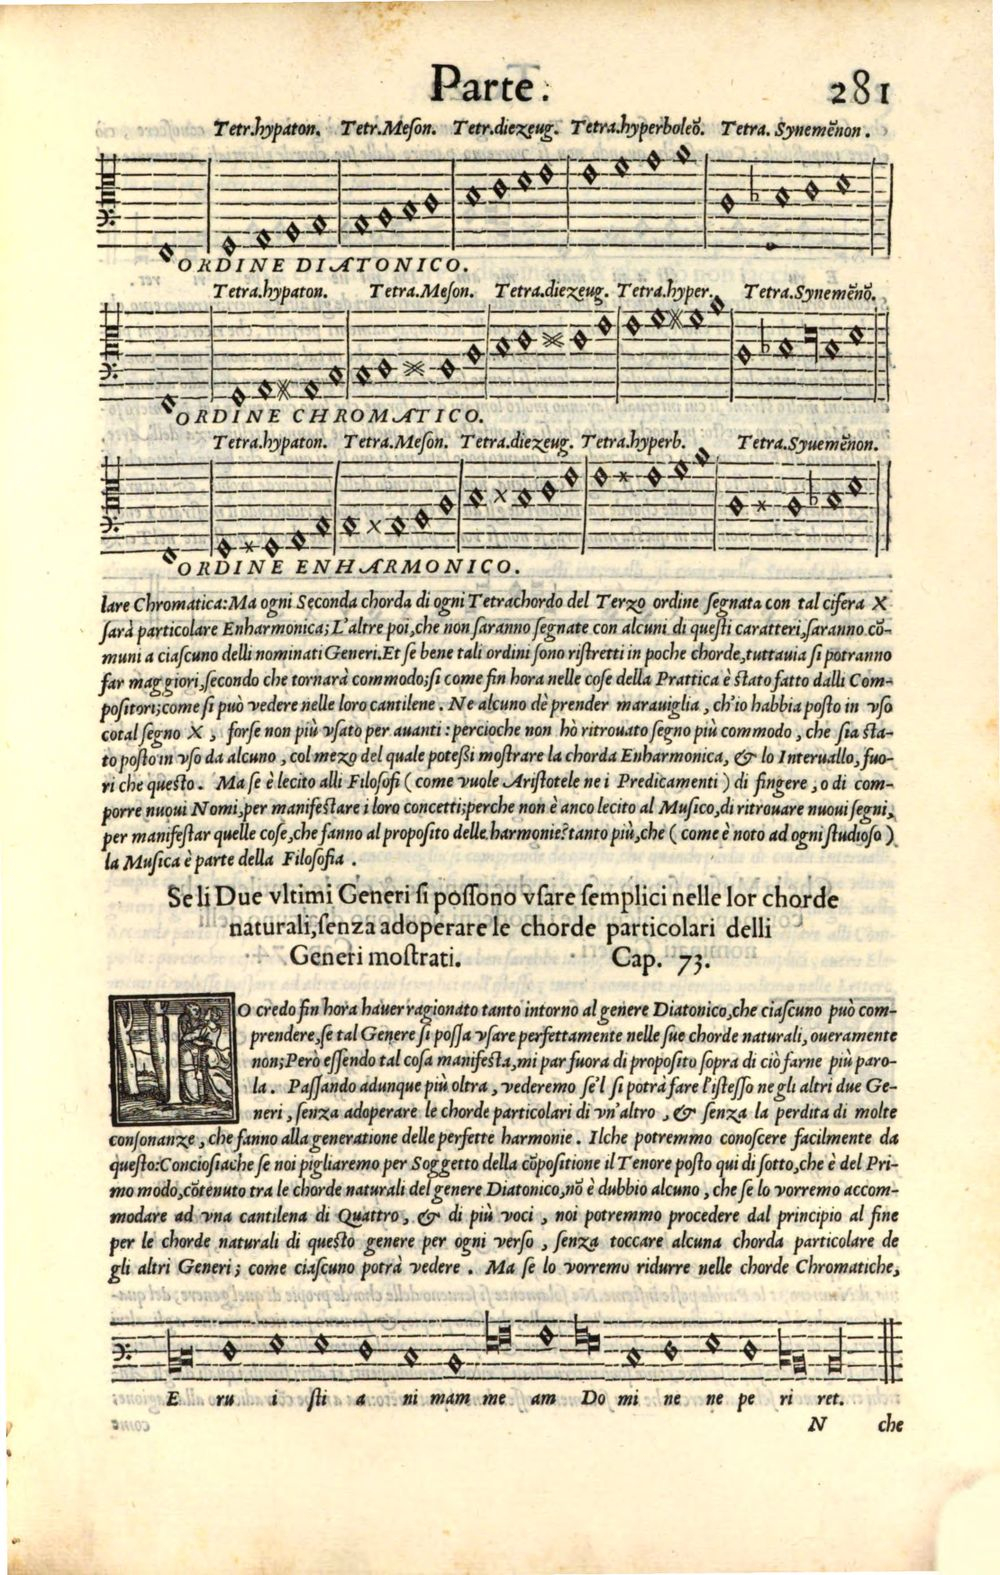 Parte. 281
Tetr.hypaton. Tetr.Meſon. Tetr.diezeug. Tetra.hyperboleõ. Tetra. Synemẽnon.
ORDINE DIATONICO.
Tetra.hypaton. Tetra.Meſon. Tetra.diezeug. Tetra.hyper. Tetra.Synemẽnõ.
ORDINE CHROMATICO.
Tetra.hypaton. Tetra.Meſon. Tetra.diezeug. Tetra.hyperb. Tetra.Syuemẽnon.
ORDINE ENHARMONICO.
lare Chromatica: Ma ogni Seconda chorda di ogni Tetrachordo del Terzo ordine ſegnata con tal cifera X
ſarà particolare Enharmonica; L'altre poi, che non ſaranno ſegnate con alcuni di queſti caratteri, ſaranno cõ-
muni a ciaſcuno delli nominati Generi. Et ſe bene tali ordini ſono riſtretti in poche chorde, tuttauia ſi potranno
far maggiori, ſecondo che tornarà commodo; ſi come fin hora nelle coſe della Prattica è ſtato fatto dalli Com-
poſitori; come ſi può vedere nelle loro cantilene. Ne alcuno dè prender marauiglia, ch'io habbia poſto in vſo
cotal ſegno X, forſe non più vſato per auanti: percioche non hò ritrouato ſegno più commodo, che ſia ſta-
to poſto in vſo da alcuno, col mezo del quale poteßi moſtrare la chorda Enharmonica, & lo Interuallo, fuo-
ri che queſto. Ma ſe è lecito alli Filoſofi (come vuole Ariſtotele ne i Predicamenti) di fingere, o di com-
porre nuoui Nomi, per manifeſtare i loro concetti; perche non è anco lecito al Muſico, di ritrouare nuoui ſegni,
per manifeſtar quelle coſe, che fanno al propoſito delle harmonie? tanto più, che (come è noto ad ogni ſtudioſo)
la Muſica è parte della Filoſofia.
Se li Due vltimi Generi ſi poſſono vſare ſemplici nelle lor chorde
naturali, ſenza adoperare le chorde particolari delli
Generi moſtrati. Cap. 73.
IO credo fin hora hauer ragionato tanto intorno al genere Diatonico, che ciaſcuno può com-
prendere, ſe tal Genere ſi poſſa vſare perfettamente nelle ſue chorde naturali, oueramente
non; Però eſſendo tal coſa manifeſta, mi par fuora di propoſito ſopra di ciò farne più paro-
la. Paſſando adunque più oltra, vederemo ſe'l ſi potrà fare l'iſteſſo ne gli altri due Ge-
neri, ſenza adoperare le chorde particolari di vn'altro, & ſenza la perdita di molte
conſonanze, che fanno alla generatione delle perfette harmonie. Ilche potremmo conoſcere facilmente da
queſto: Concioſiache ſe noi pigliaremo per Soggetto della cõpoſitione il Tenore poſto qui di ſotto, che è del Pri-
mo modo, cõtenuto tra le chorde naturali del genere Diatonico, nõ è dubbio alcuno, che ſe lo vorremo accom-
modare ad vna cantilena di Quattro, & di più voci, noi potremmo procedere dal principio al fine
per le chorde naturali di queſto genere per ogni verſo, ſenza toccare alcuna chorda particolare de
gli altri Generi; come ciaſcuno potrà vedere. Ma ſe lo vorremo ridurre nelle chorde Chromatiche,
E ru i ſti a ni mam me am Do mi ne ne pe ri ret.
N che